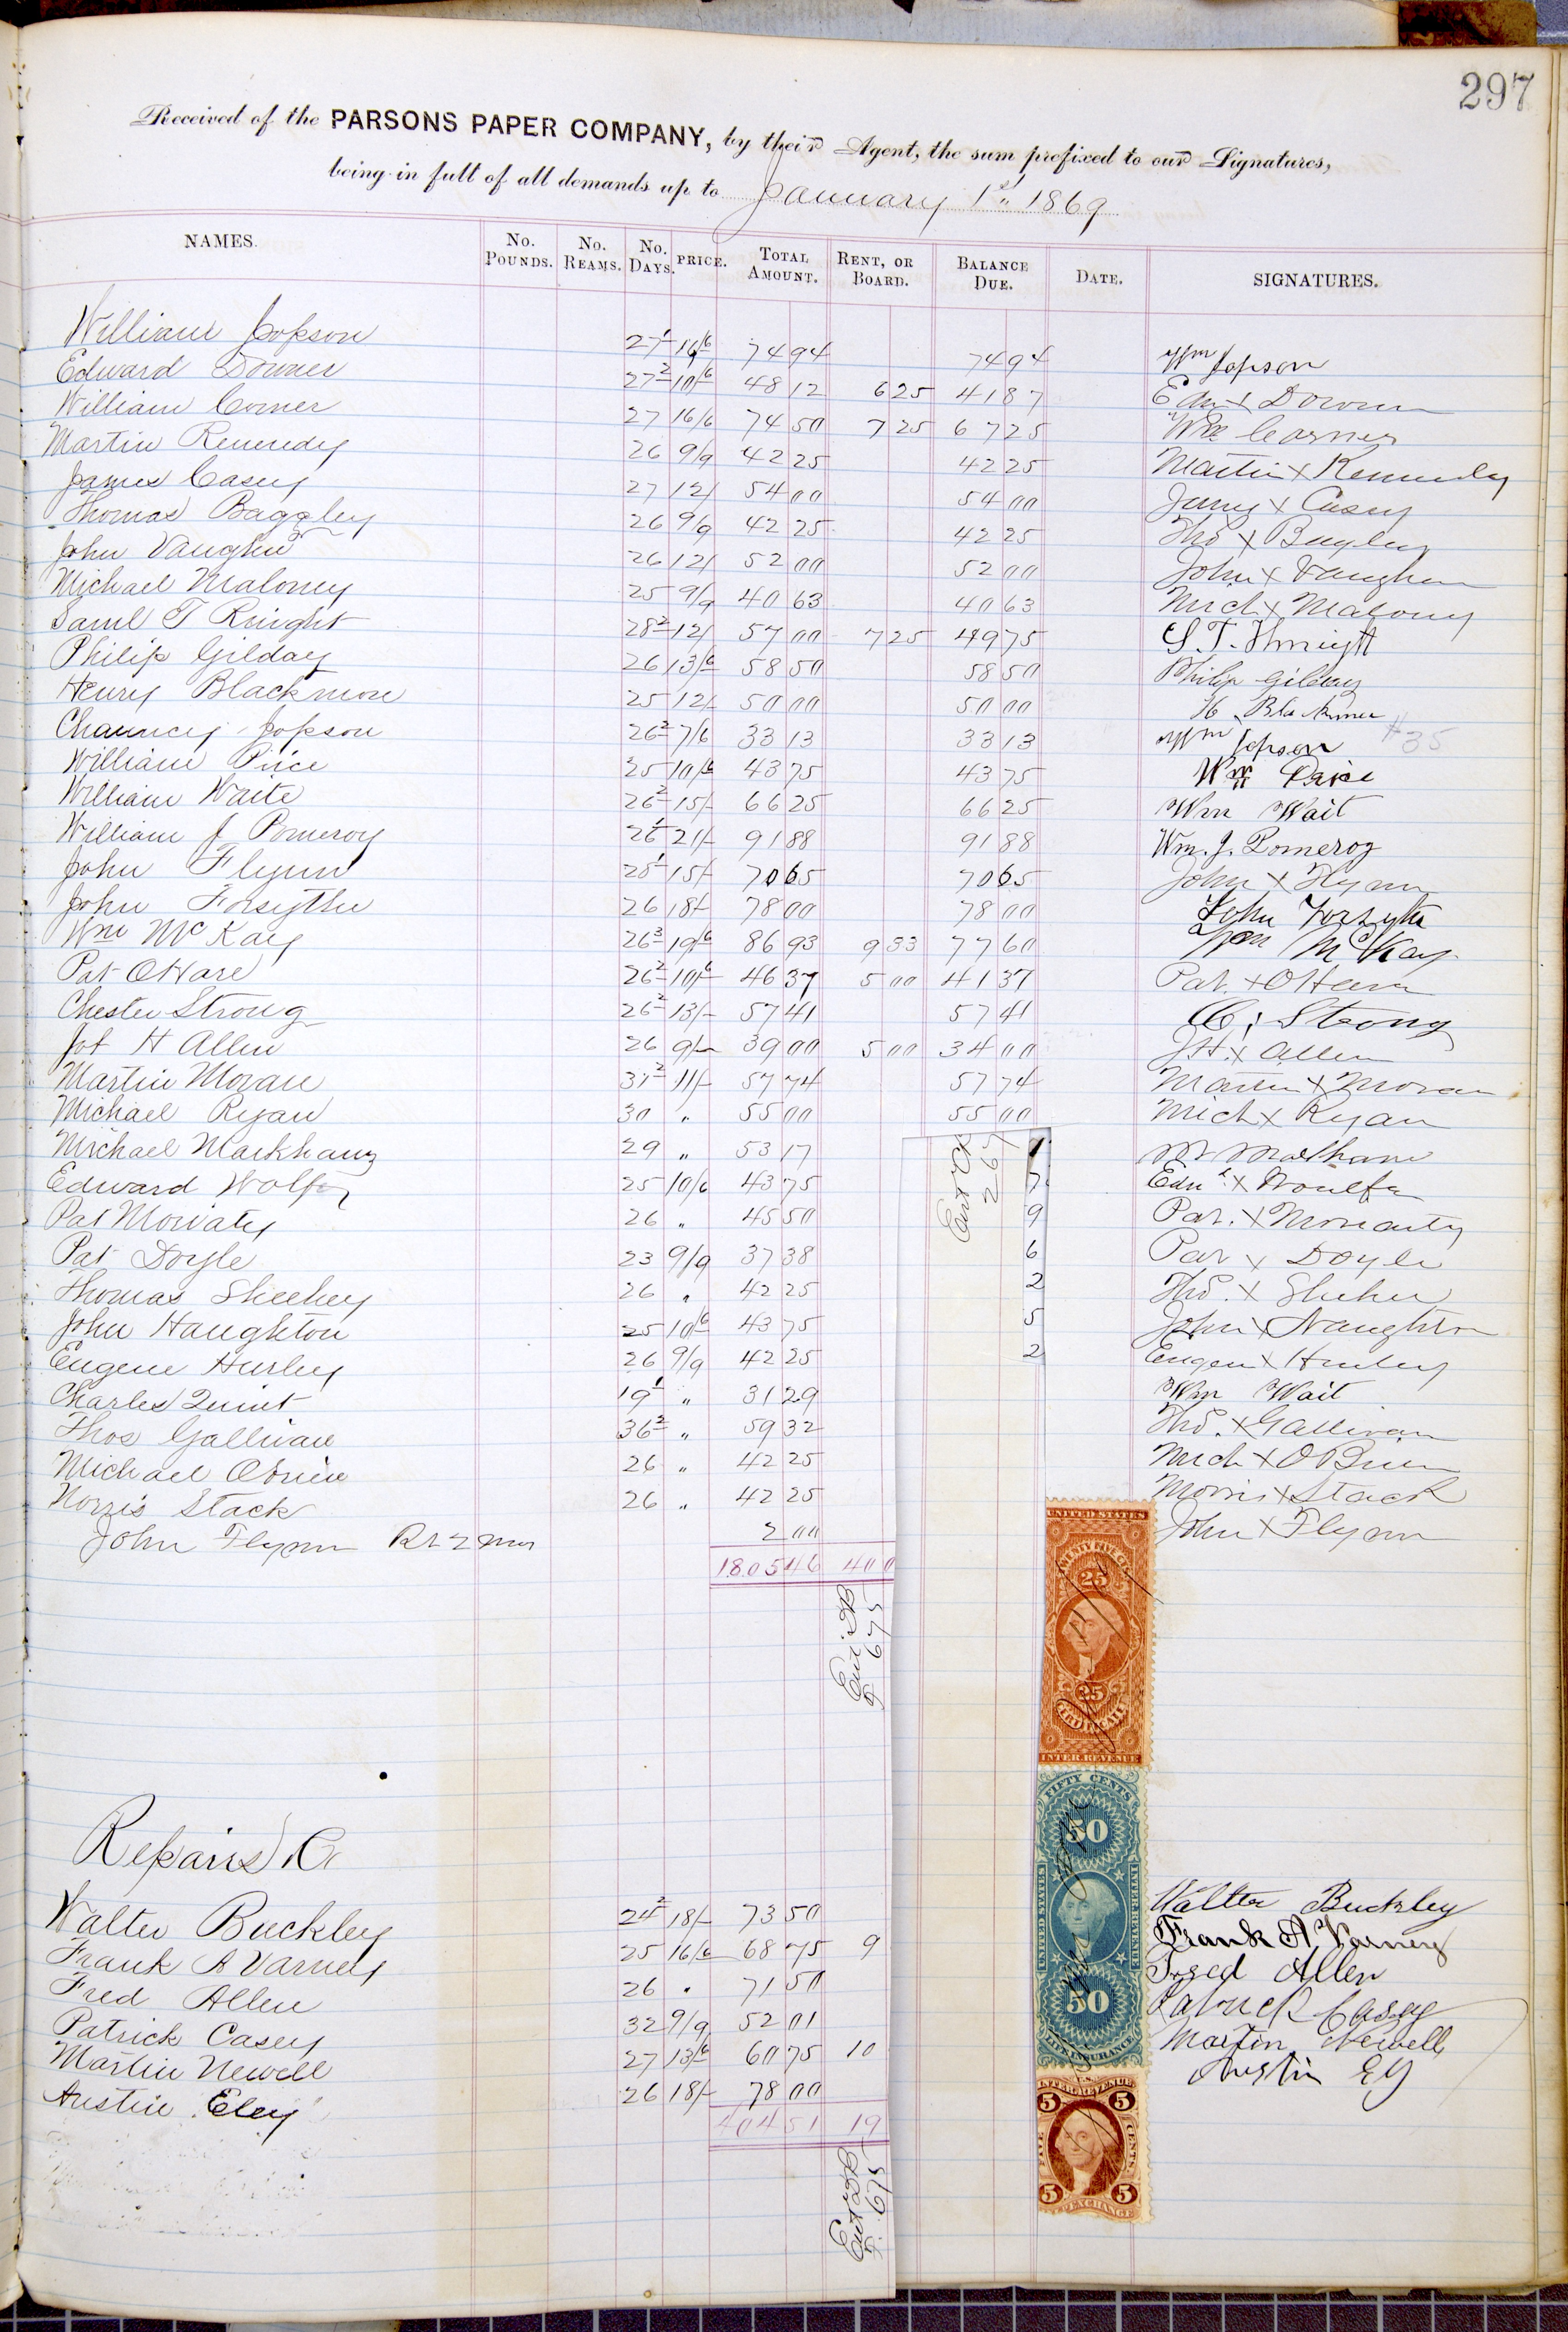 297
Received of the PARSONS PAPER COMPANY, by their Agent, the sum prefixed to our Signatures,
being in full of all demands up to January 1st 1869
NAMES. No. POUNDS. No. REAMS. No. DAYS. PRICE. TOTAL AMOUNT. RENT, OR BOARD. BALANCE DUE. DATE. SIGNATURES.
William Jopson 27 1 16/6 74 94 74 94 Wm Jopson
Edward Downer 27 2 10/6 48 12 6 25 41 87 Edw X Downer
William Corner 27 16/6 74 50 7 25 67 25 Wm Corner
Martin Kennedy 26 9/9 42 25 42 25 Martin X Kennedy
James Casey 27 12/ 54 00 54 00 James X Casey
Thomas Baggley 26 9/9 42 25 42 25 Thos X Bagley
John Vaughn 26 12/ 52 00 52 00 John X Vaughn
Michael Maloney 25 9/9 40 63 40 63 Mich X Malony
Saml T Knight 28 2 12/ 57 00 7 25 49 75 S. T. Knight
Philip Gilday 26 13/6 58 50 58 50 Philip Gilday
Henry Blackmore 25 12/ 50 00 50 00 H. Blackmer
Chauncey Jopson 26 2 7/6 33 13 33 13 Wm Jopson #35
William Price 25 10/6 43 75 43 75 Wm Price
William Waite 26 2 15/- 66 25 66 25 Wm Wait
William J Pomeroy 26 1 21/- 91 88 91 88 Wm. J. Pomeroy
John Flynn 28 1 15/- 70 65 70 65 John X Flynn
John Forsythe 26 18/- 78 00 78 00 John Forsyth
Wm McKay 26 3 19/6 86 93 9 33 77 60 Wm McKay
Pat OHare 26 2 10/6 46 37 5 00 41 37 Pat. X OHara
Chester Strong 26 2 13/- 57 41 57 41 C. Strong
Jot H Allen 26 9/- 39 00 5 00 34 00 J.H. X Allen
Martin Moran 31 2 11/- 57 74 57 74 Martin X Moran
Michael Ryan 30 " 55 00 55 00 Mich X Ryan
Michael Markham 29 " 53 17 1 M Markham
Edward Wolfe 25 10/6 43 75 7 Edw X Woulfe
Pat Moriaty 26 " 45 50 9 Pat. X Moriarty
Pat Doyle 23 9/9 37 38 6 Pat X Doyle
Thomas Sheehey 26 " 42 25 2 Thos. X Shehey
John Naughton 25 10/6 43 75 5 John X Naughton
Eugene Hurley 26 9/9 42 25 2 Eugene X Hurley
Charles Quint 19 1 " 31 29 Wm Wait
Thos Gallivan 36 2 " 59 32 Thos. X Gallivan
Michael OBrien 26 " 42 25 Mich X OBrien
Morris Stack 26 " 42 25 Morris X Stack
John Flynn 2 00 John X Flynn
1805 46 400
267
675
UNITED STATES
TWENTY FIVE CTS
25
25
CERTIFICATE
INTER. REVENUE
Repairs
Walter Buckley 24 2 18/- 73 50 Walter Buckley
Frank A Varney 25 16/6 68 75 9 Frank A Varney
Fred Allen 26 " 71 50 Fred Allen
Patrick Casey 32 9/9 52 01 Patrick Casey
Martin Newell 27 13/6 60 75 10 Martin Newell
Austin Eley 26 18/- 78 00 Austin Ely
404 51 19
675
FIFTY CENTS
50
UNITED STATES
INTER. REVENUE
50
LIFE INSURANCE
U.S.
INTER. REVENUE
5 5
FIVE CENTS
5 5
EXCHANGE